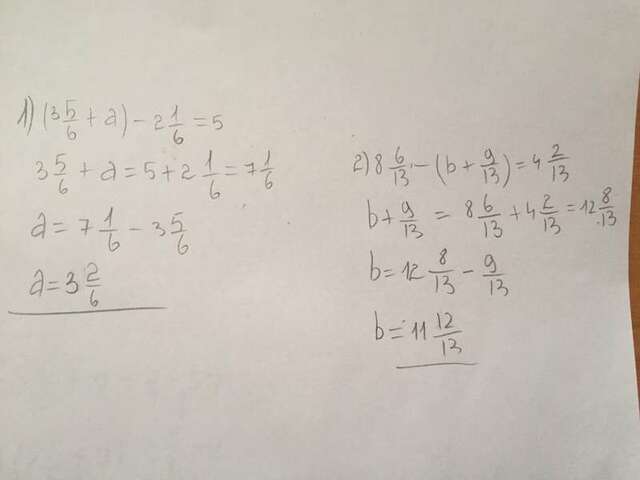 1) (3 5/6 + a) - 2 1/6 = 5
3 5/6 + a = 5 + 2 1/6 = 7 1/6
a = 7 1/6 - 3 5/6
a = 3 2/6
2) 8 6/13 - (b + 9/13) = 4 2/13
b + 9/13 = 8 6/13 + 4 2/13 = 12 8/13
b = 12 8/13 - 9/13
b = 11 12/13